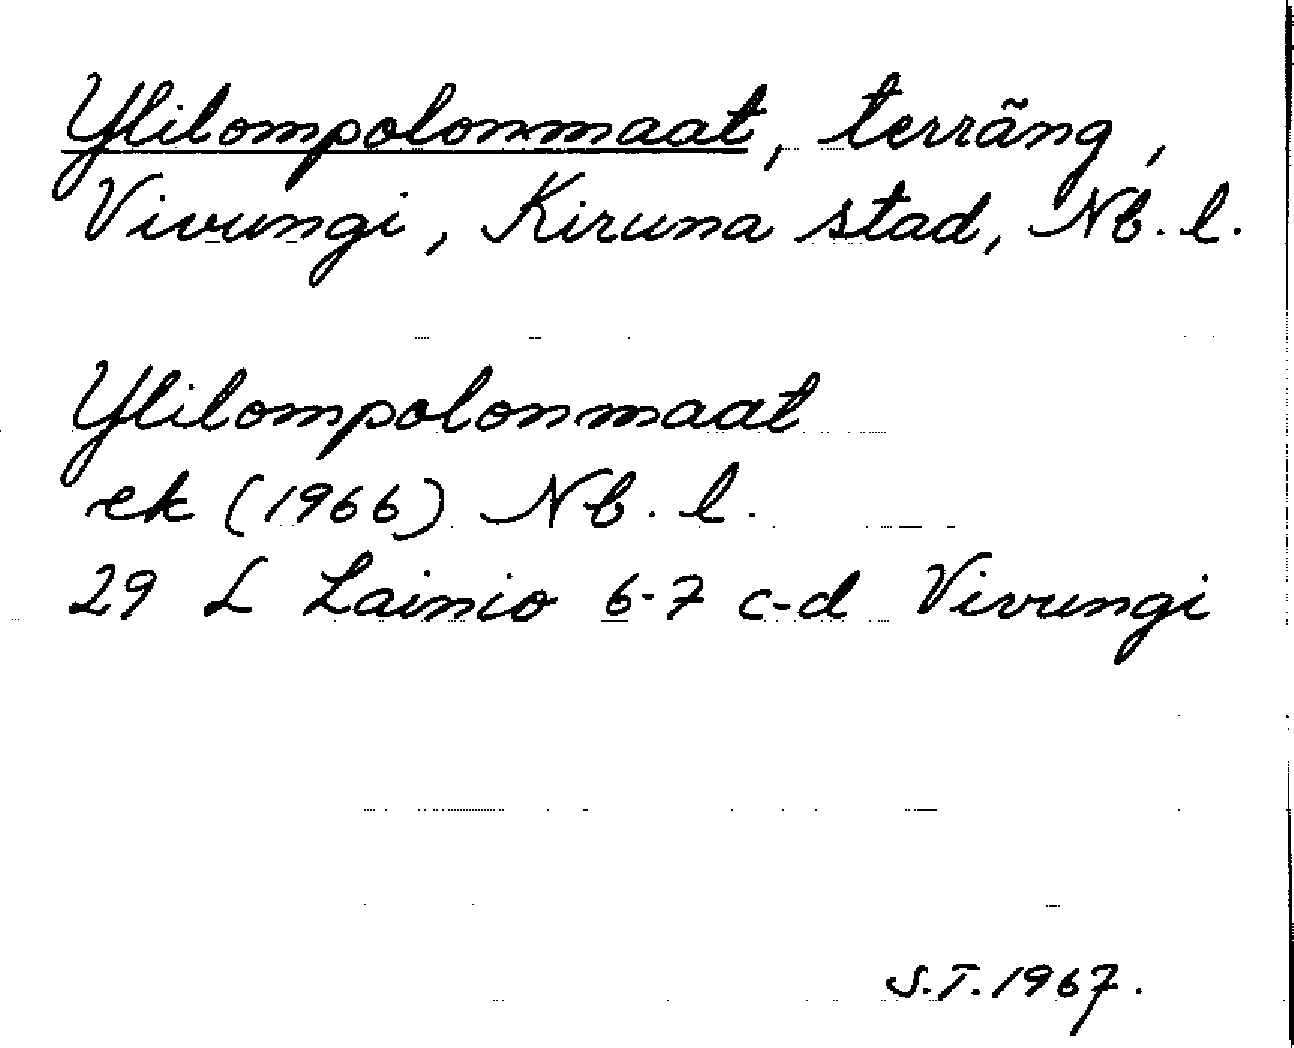 Ylilompolonmaat, terräng,
Vivungi, Kiruna stad, Nb. l.
Ylilompolonmaat
ek (1966) Nb. l.
29 L Lainio 6-7 c-d Vivungi
S.T. 1967.